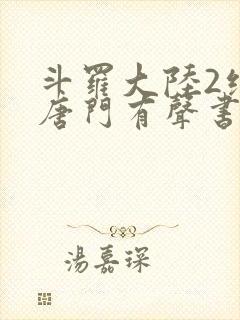 斗羅大陸2
唐門有聲書
湯嘉琛